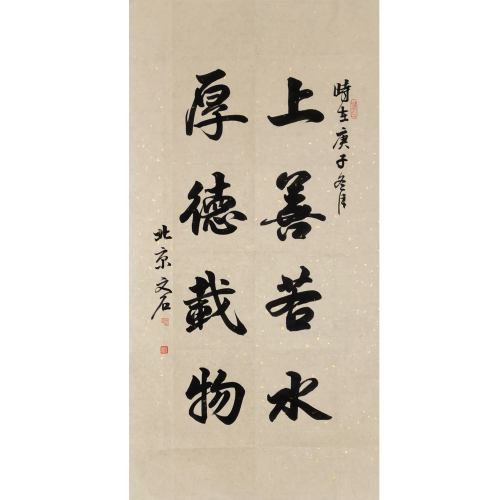 時在庚子冬月
上善若水
厚德載物
北京文石